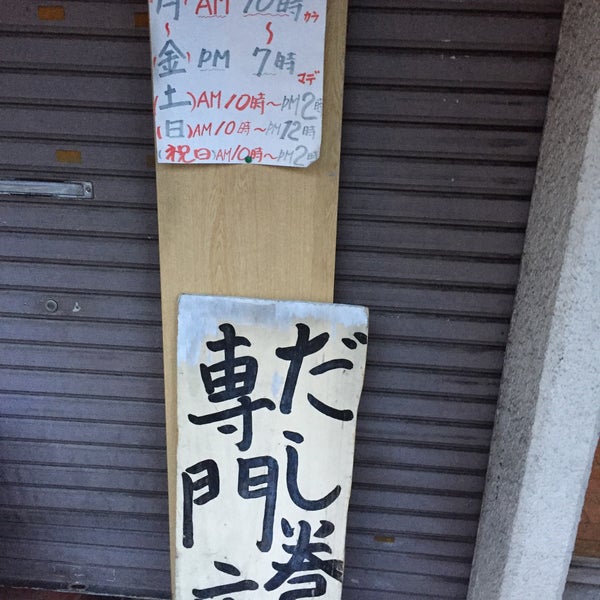 (月) AM 10時カラ
〜
(金) PM 7時マデ
(土)AM10時〜PM2時
(日)AM10時〜PM12時
(祝日)AM10時〜PM2時
だし巻
専門